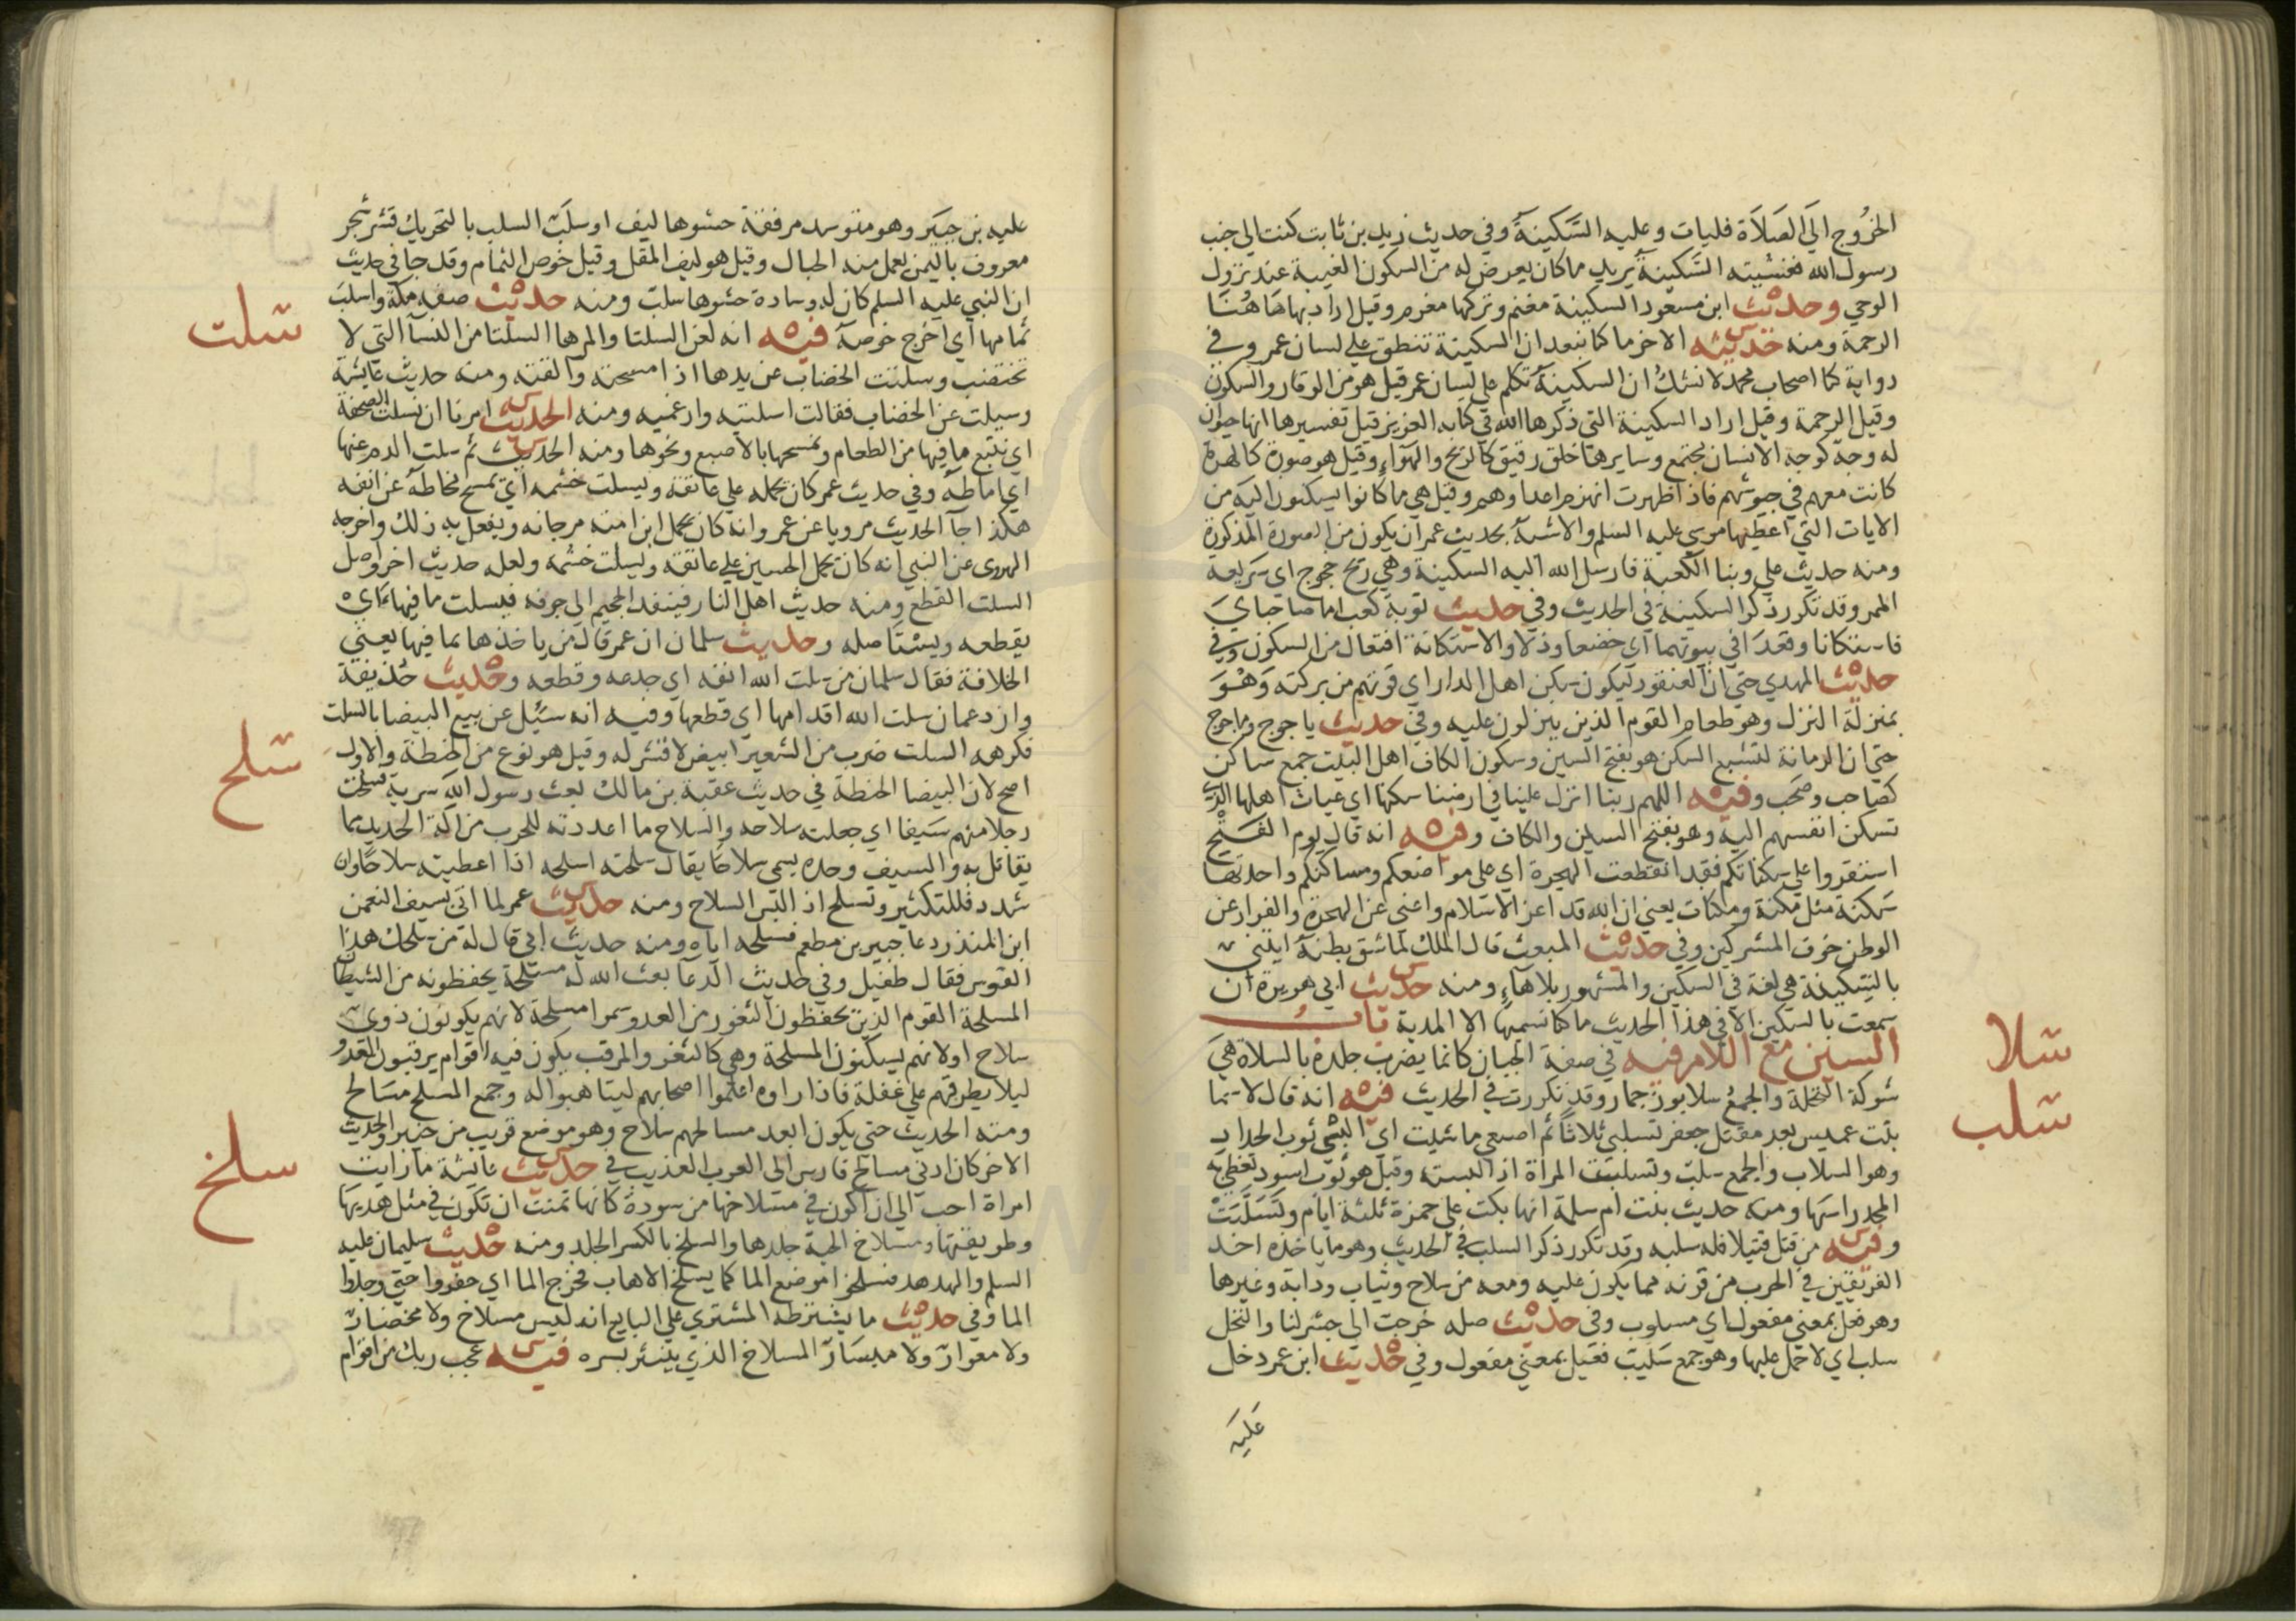 الخُروج الَى الصَلاَة فليات وعليه السَّكينةَ وفي حديث زيد بن ثابت كنت الي جنب
رسول الله فغشيته السَّكينة يريد ما كان يعرض له من السكون الغيبة عند نزول
الوحي وحديث ابن مسعود السكينة مغنم وتركها مغرم وقيل اراد بها هَا هُنَا
الرحمة ومنه حديثه الاخر ما كنا نبعد ان السكينة تنطق علي لسان عمر وفي
رواية كنا اصحاب محمد لا نشكُ ان السكينةَ تكلم علي لسان عمر قيل هو من الوقار والسكون
وقيل الرحمة وقيل اراد السكينة التي ذكرها الله في كتابه العزيز قيل تفسيرها انها حيوان
له وجه كوجه الانسان مجتمع وسايرها خلق رقيق كالريح والهواء وقيل هو صورة كالهرة
كانت معهم في جيوشهم فاذا ظهرت انهزم اعداوهم وقيل هي ما كانوا يسكنون اليه من
الايات التي اعطيها موسي عليه السلم والاشبه بحديث عمر ان يكون من الصورة المذكورة
ومنه حديث علي وبنا الكعبة فارسل الله اليه السكينة وهي ريح خجوج اي سريعة
الممر وقد تكرر ذكر السكينة في الحديث وفي حديث توبة كعب اما صاحباي
فاستكانا وقعدَا في بيوتهما اي خضعا وذلا والاستكانة افتعال من السكون وفي
حديث المهدي حتي ان العنقود ليكون سكن اهل الدار اي قوتهم من بركته وَهُوَ
بمنزلة النزل وهو طعام القوم الذين ينزلون عليه وفي حديث ياجوج وماجوج
حتي ان الرمانة لتشبع السكن هو بفتح السين وسكون الكاف اهل البيت جمع ساكن
كصاحب وصَحب وفيه اللهم ربنا انزل علينا في ارضنا سكنها اي غياث اهلها الذي
تسكن انفسهم اليه وهو بفتح السين والكاف وفيه انه قال يوم الفَتْح
استقروا علي سكناتكم فقد انقطعت الهجرة اي علي مواضعكم ومساكنكم واحدتها
سَكنة مثل مَكنة ومكنات يعني ان الله قد اعز الاسلام واغني عن الهجرة والفرار عن
الوطن خوف المشركين وفي حديث المبعث قال الملك لما شق بطنه ايتني
بالسّكينة هي لغة في السكين والمشهور بلا هاءٍ ومنه حديث ابي هريرة ان
سمعت بالسكين الا في هذا الحديث ما كنا نسميها الا المدية بَابُ
السين مع اللام فيه في صفة الجبان كانما يضرب جلده بالسلاة هيَ
شوكة النخلة والجمعُ سلا بوزن جمار وقد تكررت في الحديث فيه انه قال لاسما
بنت عميس بعد مقتل جعفر تسلبي ثلاثًا ثم اصنعي ما شيت اي البسي ثوب الحداد
وهو السلاب والجمع سلب وتسلبت المراة اذا لبسته وقيل هو ثوب اسود تغطي به
المحد راسَها ومنه حديث بنت ام سلمة انها بكت علي حمزة ثلثة ايام وتَسَلَّبَتْ
وفيه من قتل قتيلا فله سلبه وقد تكرر ذكر السلب في الحديث وهو ما ياخذه احد
الفريقين في الحرب من قرنه مما يكون عليه ومعه من سلاح وثياب ودابة وغيرها
وهو فعل بمعني مفعول اي مسلوب وفي حديث صله خرجت الي جشر لنا والنخل
سلب اي لا حمل عليها وهو جمع سَليب فعيل بمعني مفعول وفي حديث ابن عمر دخل
عليه
سلا
سلب
عليه بن جبَير وهو متوسد مرفقة حشوها ليف او سلَب السلب بالتحريك قشر شجر
معروف باليمن يعمل منه الحبال وقيل هو ليف المقل وقيل خوص الثمام وقد جا في حديث
ان النبي عليه السلم كان له وسادة حشوها سلب ومنه حديث صفة مكة واسلبَ
ثمامها اي اخرج خوصه فيه انه لعن السلتا والمرها السلتا من النسآ التي لا
تختضب وسلتت الخضاب عن يدها اذا مسحته والقته ومنه حديث عايشة
وسيلت عن الخضاب فقالت اسلتيه وارغميه ومنه الحديث امرنا ان نسلت الصحفة
اي نتتبع ما فيها من الطعام ونمسحها بالاصبع ونحوها ومنه الحديث ثم سلت الدم عنها
اي اماطه وفي حديث عمر كان يحمله علي عاتقه ويسلت خشمه اي يمسح مخاطه عن انفه
هكذا جآ الحديث مرويا عن عمر وانه كان يحمل ابن امته مرجانه ويفعل به ذلك واخرجه
الهروي عن النبي انه كان يحمل الحسين علي عاتقه ويسلت خشمه ولعله حديث اخر واصل
السلت القطع ومنه حديث اهل النار فينفد الحميم الي جوفه فيسلت ما فيها اي
يقطعه ويستاصله وحديث سلمان ان عمر قال من ياخذها بما فيها يعني
الخلافة فقال سلمان من سلت الله انفه اي جدعه وقطعه وحديث حُذيفة
وازد عمان سلت الله اقدامها اي قطعها وفيه انه سئيل عن بيع البيضا بالسلت
فكرهه السلت ضرب من الشعير ابيض لا قشر له وقيل هو نوع من الحنطة والاول
اصح لان البيضا الحنطة في حديث عقبة بن مالك بعث رسول الله سرية فسلحت
رجلا منهم سَيفا اي جعلته سلاحه والسلاح ما اعددته للحرب من آلة الحديد مما
يقاتل به والسيف وحده يسمي سلاحًا يقال سلحته اسلحه اذا اعطيته سلاحًا وان
شدد فللتكثير وتسلح اذا لبس السلاح ومنه حديث عمر لما اتي بسيف النعمن
ابن المنذر دعا جبير بن مطعم فسلحه اياه ومنه حديث ابي قال له من سلحك هذا
القوس فقال طفيل وفي حديث الدعآ بعث الله له مسلحة يحفظونه من الشيطان
المسلحة القوم الذين يحفظون الثغور من العدو سموا مسلحة لانهم يكونون ذوي
سلاح او لانهم يسكنون المسلحة وهي كالثغر والمرقب يكون فيه اقوام يرقبون العدو
ليلا يطرقهم علي غفلة فاذا راوه اعلموا اصحابهم ليتاهبوا له وجمع المسلح مسَالح
ومنه الحديث حتي يكون ابعد مسالحهم سلاح وهو موضع قريب من خيبر والحديث
الاخر كان ادني مسالح فارس الي العرب العذيب في حديث عايشة ما رايت
امراة احب الي ان اكون في مسلاخها من سودة كانها تمنت ان تكون في مثل هديها
وطريقتها ومسلاخ الحية جلدها والسلخ بالكسر الجلد ومنه حديث سليمان عليه
السلم والهدهد فسلخوا موضع الما كما يسلخ الاهاب فخرج الما اي حفروا حتي وجدوا
الما وفي حديث ما يشترطه المشتري علي البايع انه ليس مسلاخ ولا مخضار
ولا معوار ولا مبسَار المسلاخ الذي ينتثر بسره فيه عجب ربك من اقوام
سلت
سلح
سلخ